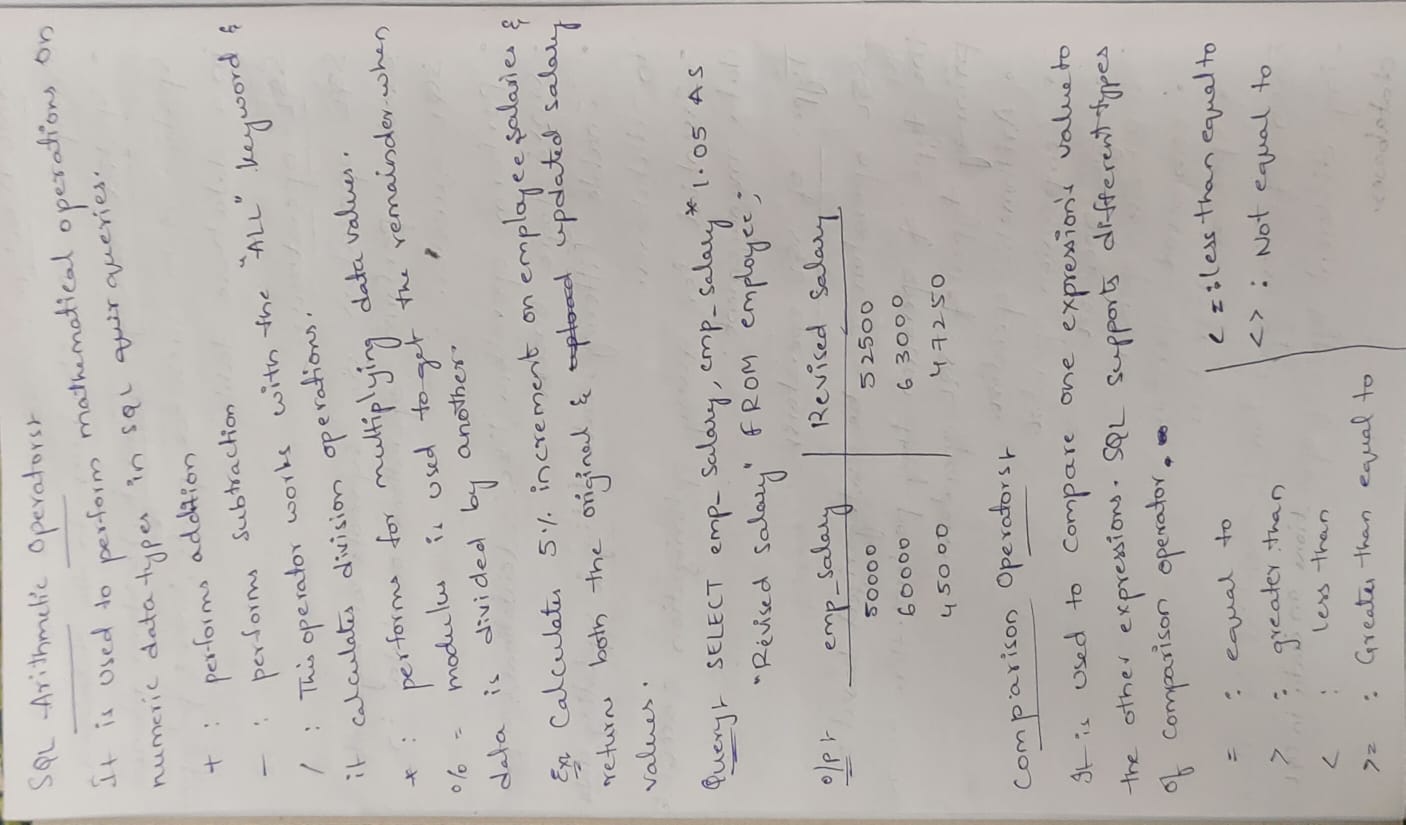 SQL Arithmetic Operators:-
It is used to perform mathematical operations on
numeric data types in SQL queries.
+ : performs addition
- : performs subtraction
/ : This operator works with the "ALL" keyword &
it calculates division operations.
* : performs for multiplying data values.
% = modulus is used to get the remainder when
data is divided by another.
Ex Calculates 5% increment on employee salaries &
returns both the original & updated salary
values.
Query:- SELECT emp_salary, emp_salary * 1.05 AS
"Revised salary" FROM employee;
o/p:- emp_salary | Revised salary
50000 | 52500
60000 | 63000
45000 | 47250
Comparison Operators:-
It is used to compare one expression's value to
the other expressions. SQL supports different types
of comparison operator.
= : equal to
> : greater than
< : less than
>= : Greater than equal to
<= : less than equal to
<> : Not equal to